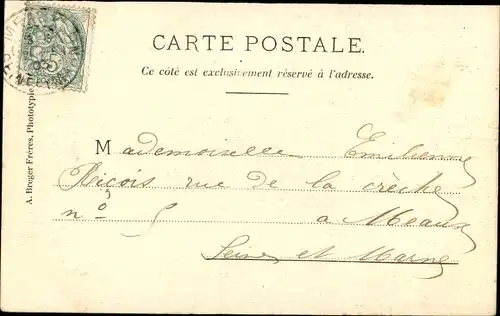 CARTE POSTALE.
Ce côté est exclusivement réservé à l'adresse.
A. Breger Frères, Phototypie
Mademoiselle Emilienne
rue de la crèche
n° 5 a Meaux
Seine et Marne